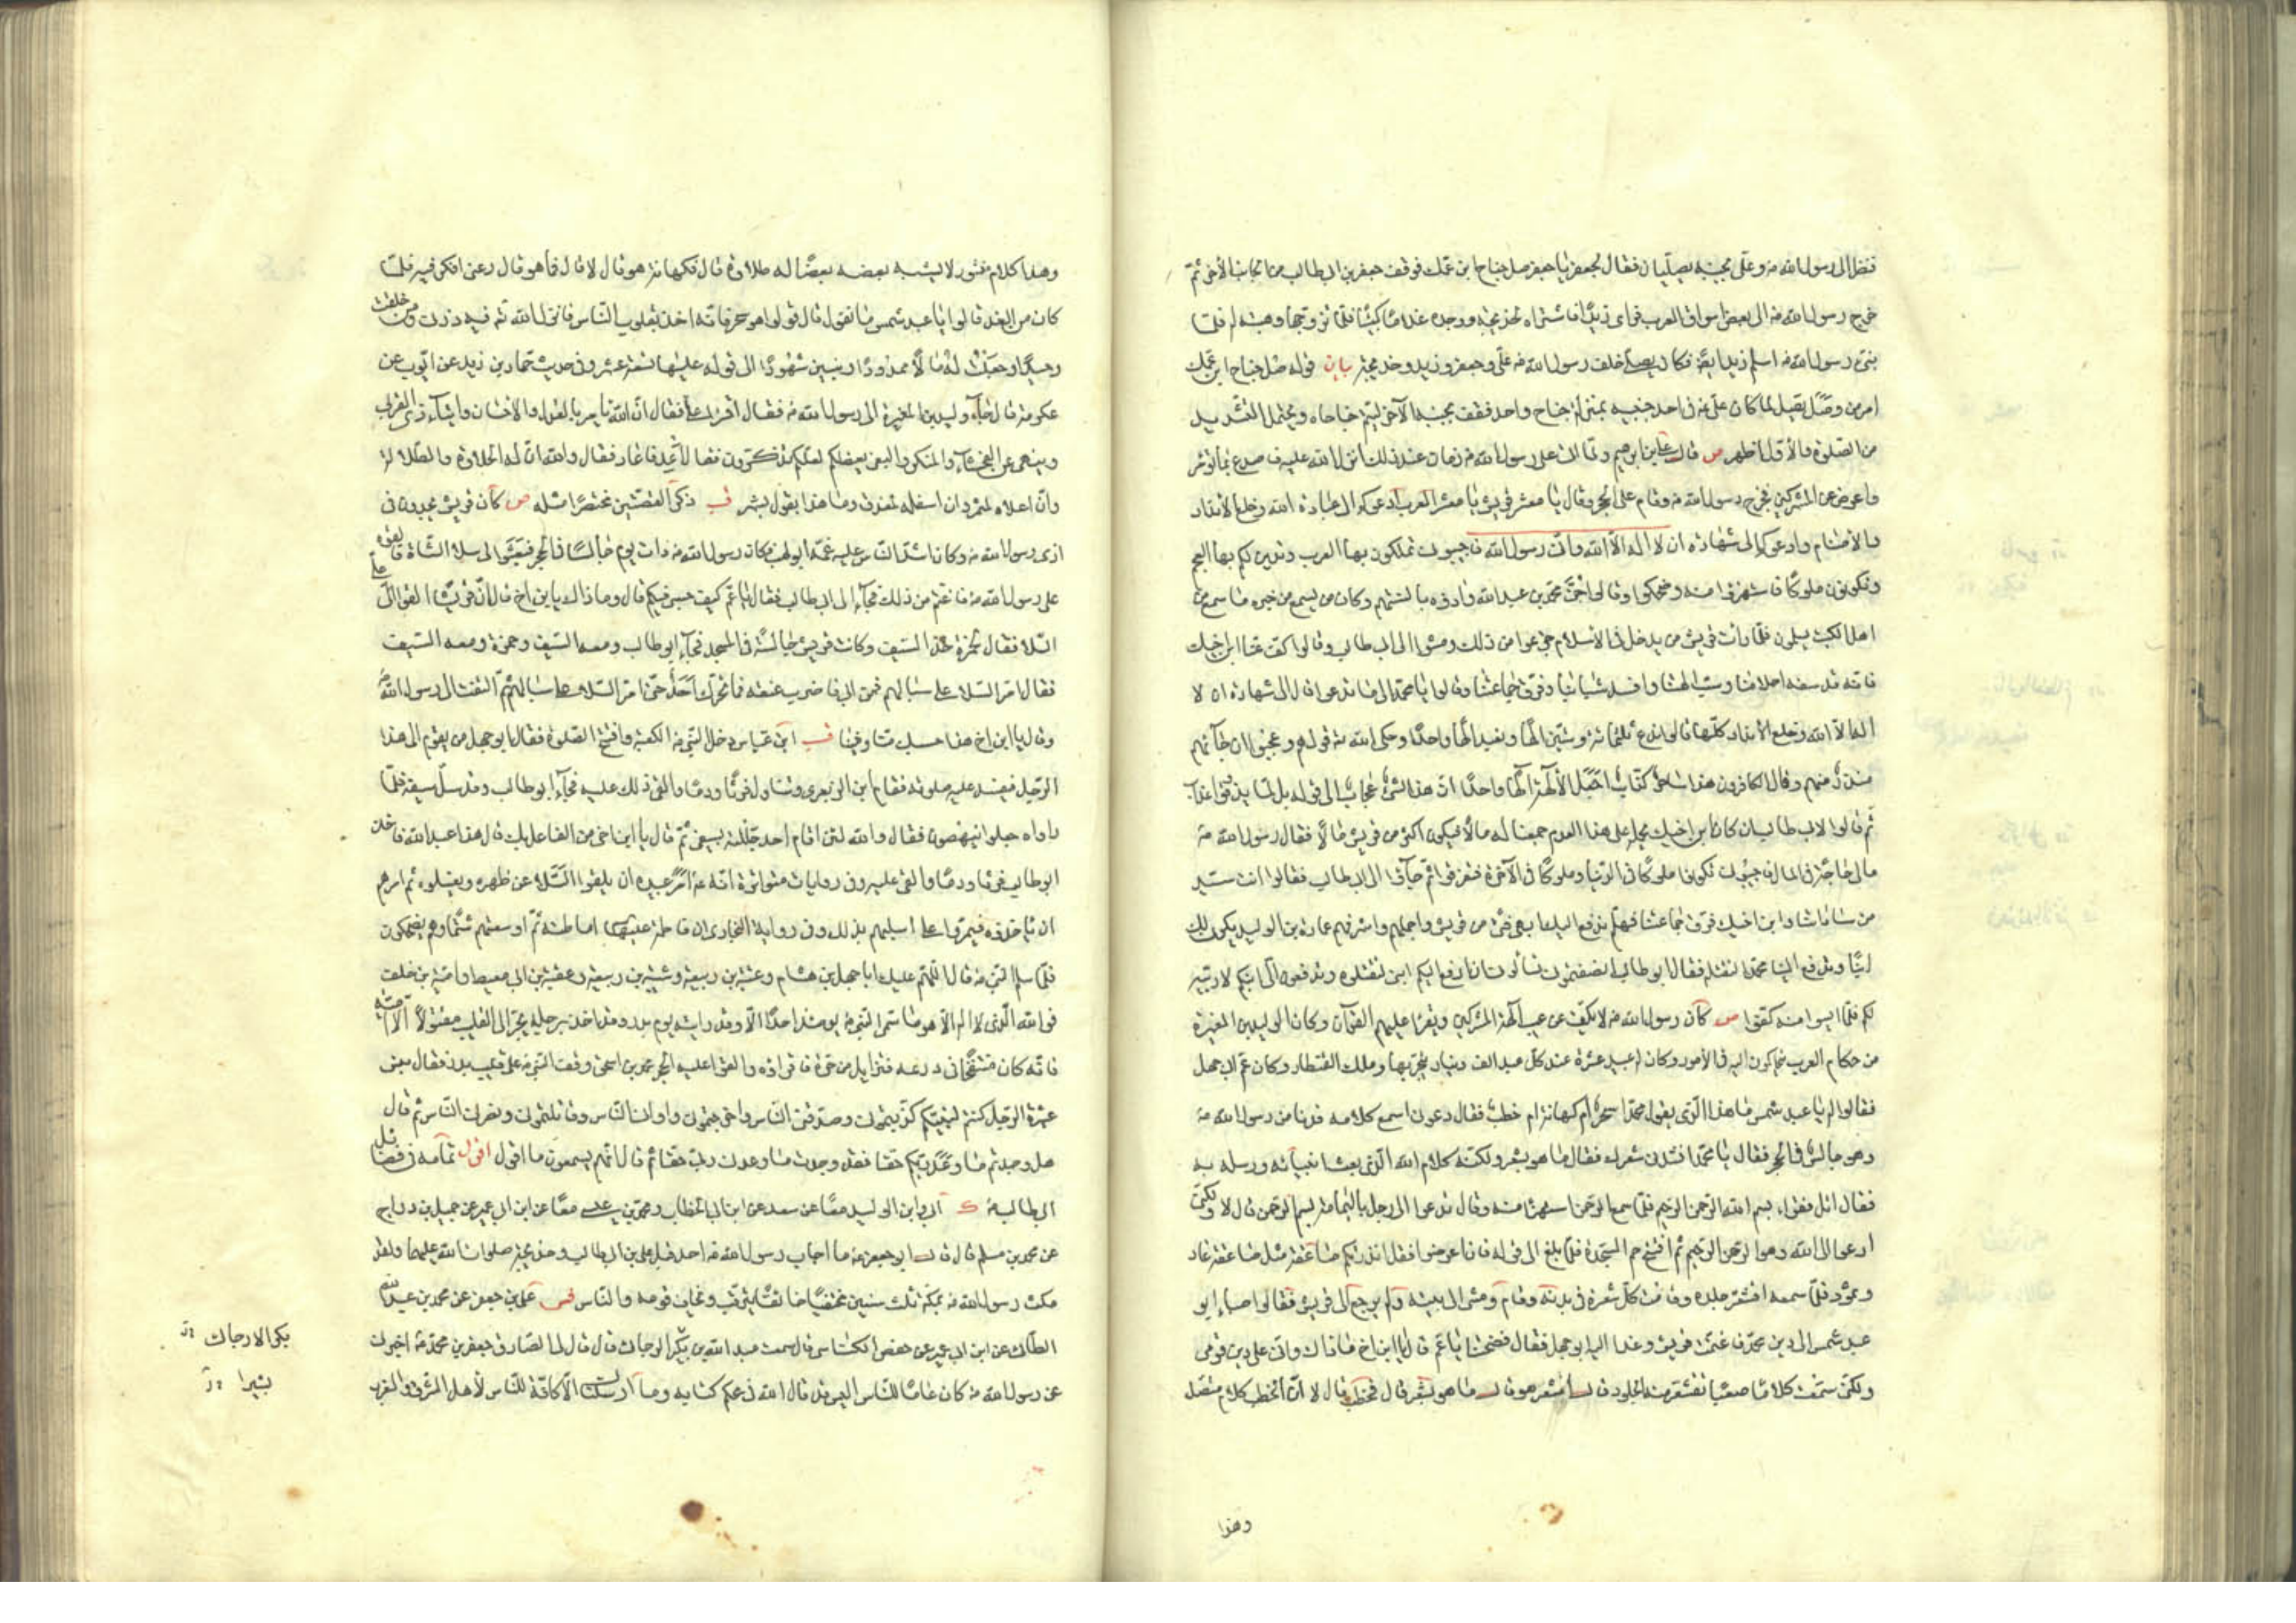 فنظر الى رسول الله ص وعلى بجنبه يصلّيان فقال لجعفر يا جعفر صل جناح ابن عمك فوقف جعفر بن ابيطالب من الجانب الآخر ثم
خرج رسول الله ص الى بعض اسواق العرب فراى زيدًا فاشتراه لخديجة ووجده غلامًا كيّسًا فلمّا تزوجها وهبته له فلمّا
نبئ رسول الله ص اسلم زيد ايضًا فكان يصلّى خلف رسول الله ص علىّ وجعفر وزيد وخديجة بيان قوله صل جناح ابن عمّك
امر من وصل يصل لما كان علىّ ع فى احد جنبيه بمنزلة جناح واحد فقف بجنبه الآخر ليتم جناحاه ويحتمل التشديد
من الصلوة والأوّل اظهر ص قال على بن ابرهيم ولمّا اتى على رسول الله ص زمان عند ذلك انزل الله عليه فاصدع بما تؤمر
واعرض عن المشركين فخرج رسول الله ص وقام على الحجر وقال يا معشر قريش يا معشر العرب ادعوكم الى عبادة الله وخلع الانداد
والأصنام وادعوكم الى شهادة ان لا اله الّا الله وانّى رسول الله فاجيبونى تملكون بها العرب وتدين لكم بها العجم
وتكونون ملوكًا فاستهزؤا منه وضحكوا وقالوا جنّ محمّد بن عبد الله وآذوه بالسنتهم وكان من يسمع من خبره ما سمع من
اهل الكتب يسلمون فلمّا رأت قريش من يدخل فى الاسلام جزعوا من ذلك ومشوا الى ابى طالب وقالوا كفّ عنّا ابن اخيك
فانّه قد سفه احلامنا وسبّ الهتنا وافسد شبابنا وفرّق جماعتنا وقالوا يا محمّد الى ما تدعو قال الى شهادة ان لا
اله الّا الله وخلع الانداد كلّها قالوا ندع ثلثمائة وستّين الهًا ونعبد الهًا واحدًا وحكى الله ته قولهم وعجبوا ان جآئهم
منذرٌ منهم وقال الكافرون هذا ساحرٌ كذّاب اجعل الألهة الهًا واحدًا انّ هذا لشئ عجابٌ الى قوله بل لمّا يذوقوا عذاب
ثم قالوا لابى طالب ان كان ابن اخيك يحمله على هذا العدم جمعنا له مالًا فيكون اكثر من قريش مالًا فقال رسول الله ص
مالى حاجة فى المال فاجيبونى تكونوا ملوكًا فى الدنيا وملوكًا فى الآخرة فتفرّقوا ثم جآؤا الى ابى طالب فقالوا انت سيّد
من ساداتنا وابن اخيك فرّق جماعتنا فهلم ندفع اليك ابهى فتى من قريش واجملهم واشرفهم عمارة بن الوليد يكون لك
ابنًا وتدفع الينا محمّدًا لنقتله فقال ابو طالب ما انصفتمونى تسألونى ان ادفع اليكم ابنى لتقتلوه وتدفعون الىّ ابنكم لاربّيه
لكم فلمّا ايسوا منه كفّوا ص كان رسول الله ص لا يكفّ عن عيب آلهة المشركين ويقرأ عليهم القرآن وكان الوليد بن المغيرة
من حكام العرب يتحاكمون اليه فى الأمور وكان له عبيد عشرة عند كلّ عبد الف دينار يتّجر بها وملك القنطار وكان عمّ ابى جهل
فقالوا له يا عبد شمس ما هذا الّذى يقول محمّد أسحرٌ ام كهانة ام خطب فقال دعونى اسمع كلامه فدنا من رسول الله ص
وهو جالس فى الحجر فقال يا محمّد انشدنى شعرك فقال ما هو بشعر ولكنّه كلام الله الّذى بعث انبيآئه ورسله به
فقال اتل فقرأ بسم الله الرحمن الرحيم فلمّا سمع الرحمن استهزأ منه وقال تدعوا الى رجل باليمامة بسم الرحمن قال لا ولكنّى
ادعو الى الله وهو الرحمن الرحيم ثم افتتح حم السجدة فلمّا بلغ الى قوله فان اعرضوا فقل انذرتكم صاعقة مثل صاعقة عاد
وثمود فلمّا سمعه اقشعرّ جلده وقامت كلّ شعرة فى بدنه وقام ومشى الى بيته ولم يرجع الى قريش فقالوا صبا ابو
عبد شمس الى دين محمّد فاغتمّت قريش وغدا اليه ابو جهل فقال فضحتنا يا عمّ قال يا ابن اخ ما ذاك وانّى على دين قومى
ولكنّى سمعت كلامًا صعبًا تقشعرّ منه الجلود قال أشعر هو قال ما هو بشعر قال فخطب قال لا انّ الخطب كلام متّصل
وهذا
وهذا كلام منثور لا يشبه بعضه بعضًا له طلاوة قال فكهانة هو قال لا قال فما هو قال دعنى افكر فيه فلمّا
كان من الغد قالوا يا عبد شمس ما تقول قال قولوا هو سحر فانّه اخذ بقلوب النّاس فانزل الله ته فيه ذرنى ومن خلقت
وحيدًا وجعلت له مالًا ممدودًا وبنين شهودًا الى قوله عليها تسعة عشر وفى حديث حمّاد بن زيد عن ايّوب عن
عكرمة قال جآء وليد بن المغيرة الى رسول الله ص فقال اقرأ علىّ فقال انّ الله يأمر بالعدل والاحسان وايتآء ذى القربى
وينهى عن الفحشآء والمنكر والبغى يعظكم لعلّكم تذكّرون فقال أعد فاعاد فقال والله انّ له الحلاوة والطلاوة
وانّ اعلاه لمثمر وان اسفله لمعذق وما هذا بقول بشر قب ذكر القصّتين مختصرًا مثله ص كان قريش يجدون فى
اذى رسول الله ص وكان اشدّ النّاس عليه عمّه ابو لهب فكان رسول الله ص ذات يوم جالسًا فى الحجر فبعثوا الى سلا الشاة فالقوه
على رسول الله ص فاغتمّ من ذلك فجآء الى ابى طالب فقال يا عمّ كيف حسبى فيكم قال وما ذاك يا ابن اخ قال انّ قريشًا القوا علىّ
السّلا فقال لحمزة خذ السيف وكانت قريش جالسة فى المسجد فجآء ابو طالب ومعه السيف وحمزة ومعه السيف
فقال امرّ السّلا على سبالهم فمن ابى فاضرب عنقه فما تحرّك احد حتّى امرّ السّلا على سبالهم ثمّ التفت الى رسول الله ص
وقال يا ابن اخ هذا حسبك منّا وفينا قب ابن عبّاس دخل النّبىّ ص الكعبة وافتتح الصلوة فقال ابو جهل من يقوم الى هذا
الرّجل فيفسد عليه صلوته فقام ابن الزبعرى وتناول فرثًا ودمًا والقى ذلك عليه فجآء ابو طالب وقد سلّ سيفه فلمّا
راواه جعلوا ينهضون فقال والله لئن قام احد جلّلته بسيفى ثمّ قال يا ابن اخى من الفاعل بك قال هذا عبد الله فاخذ
ابو طالب فرثًا ودمًا والقى عليه وفى روايات متواترة انّه ع امر عبيده ان يلقوا السّلا عن ظهره ويغسلوه ثم امرهم
ان يأخذوه فيمرّوا على اسبلتهم بذلك وفى رواية البخارى ان فاطمة عليها اماطته ثمّ اوسعتهم شتمًا وهم يضحكون
فلمّا سلّم النّبى ص قال اللّهم عليك ابا جهل بن هشام وعتبة بن ربيعة وشيبة بن ربيعة وعقبة بن ابى معيط وامية بن خلف
فو الله الّذى لا اله الّا هو ما سمّى النّبى ص يومئذ احدًا الّا وقد رايته يوم بدر وقد اخذ برجليه يجرّ الى القليب مقتولًا الّا اميّة
فانّه كان منتفخًا فى درعه فتزايل من جرّه فاقرّوه والقوا عليه الحجر محمد بن اسحق وقف النّبى ص على قليب بدر فقال بئس
عشيرة الرّجل كنتم لنبيّكم كذّبتمونى وصدّقنى النّاس واخرجتمونى وآوانى النّاس وقاتلتمونى ونصرنى النّاس ثم قال
هل وجدتم ما وعدكم ربّكم حقًا فقد وجدت ما وعدنى ربّى حقًا ثم قال انّهم يسمعون ما اقول اقول تمامه فى فضائل
ابيطالب ع ك ابى وابن الوليد معًا عن سعد عن ابن ابى الخطاب ومحمّد بن عيسى معًا عن ابن ابى عمير عن جميل بن دراج
عن محمد بن مسلم قال قال ابو جعفر ع ما اجاب رسول الله ص احد قبل على بن ابى طالب وخديجة صلوات الله عليهما ولقد
مكث رسول الله ص بمكّة ثلث سنين مختفيًا خائفًا يترقب ويخاف قومه والنّاس فس على بن جعفر عن محمد بن عبد الله
الطائى عن ابن ابى عمير عن حفص الكنّاسى قال سمعت عبد الله بن بكر الرجانى قال قال لى الصادق جعفر بن محمّد ص اخبرنى
عن رسول الله ص كان عامًا للنّاس اليس قد قال الله فى محكم كتابه وما ارسلناك الّا كافّة للنّاس لأهل المشرق والمغرب
بكر الارجانى
بشيرا